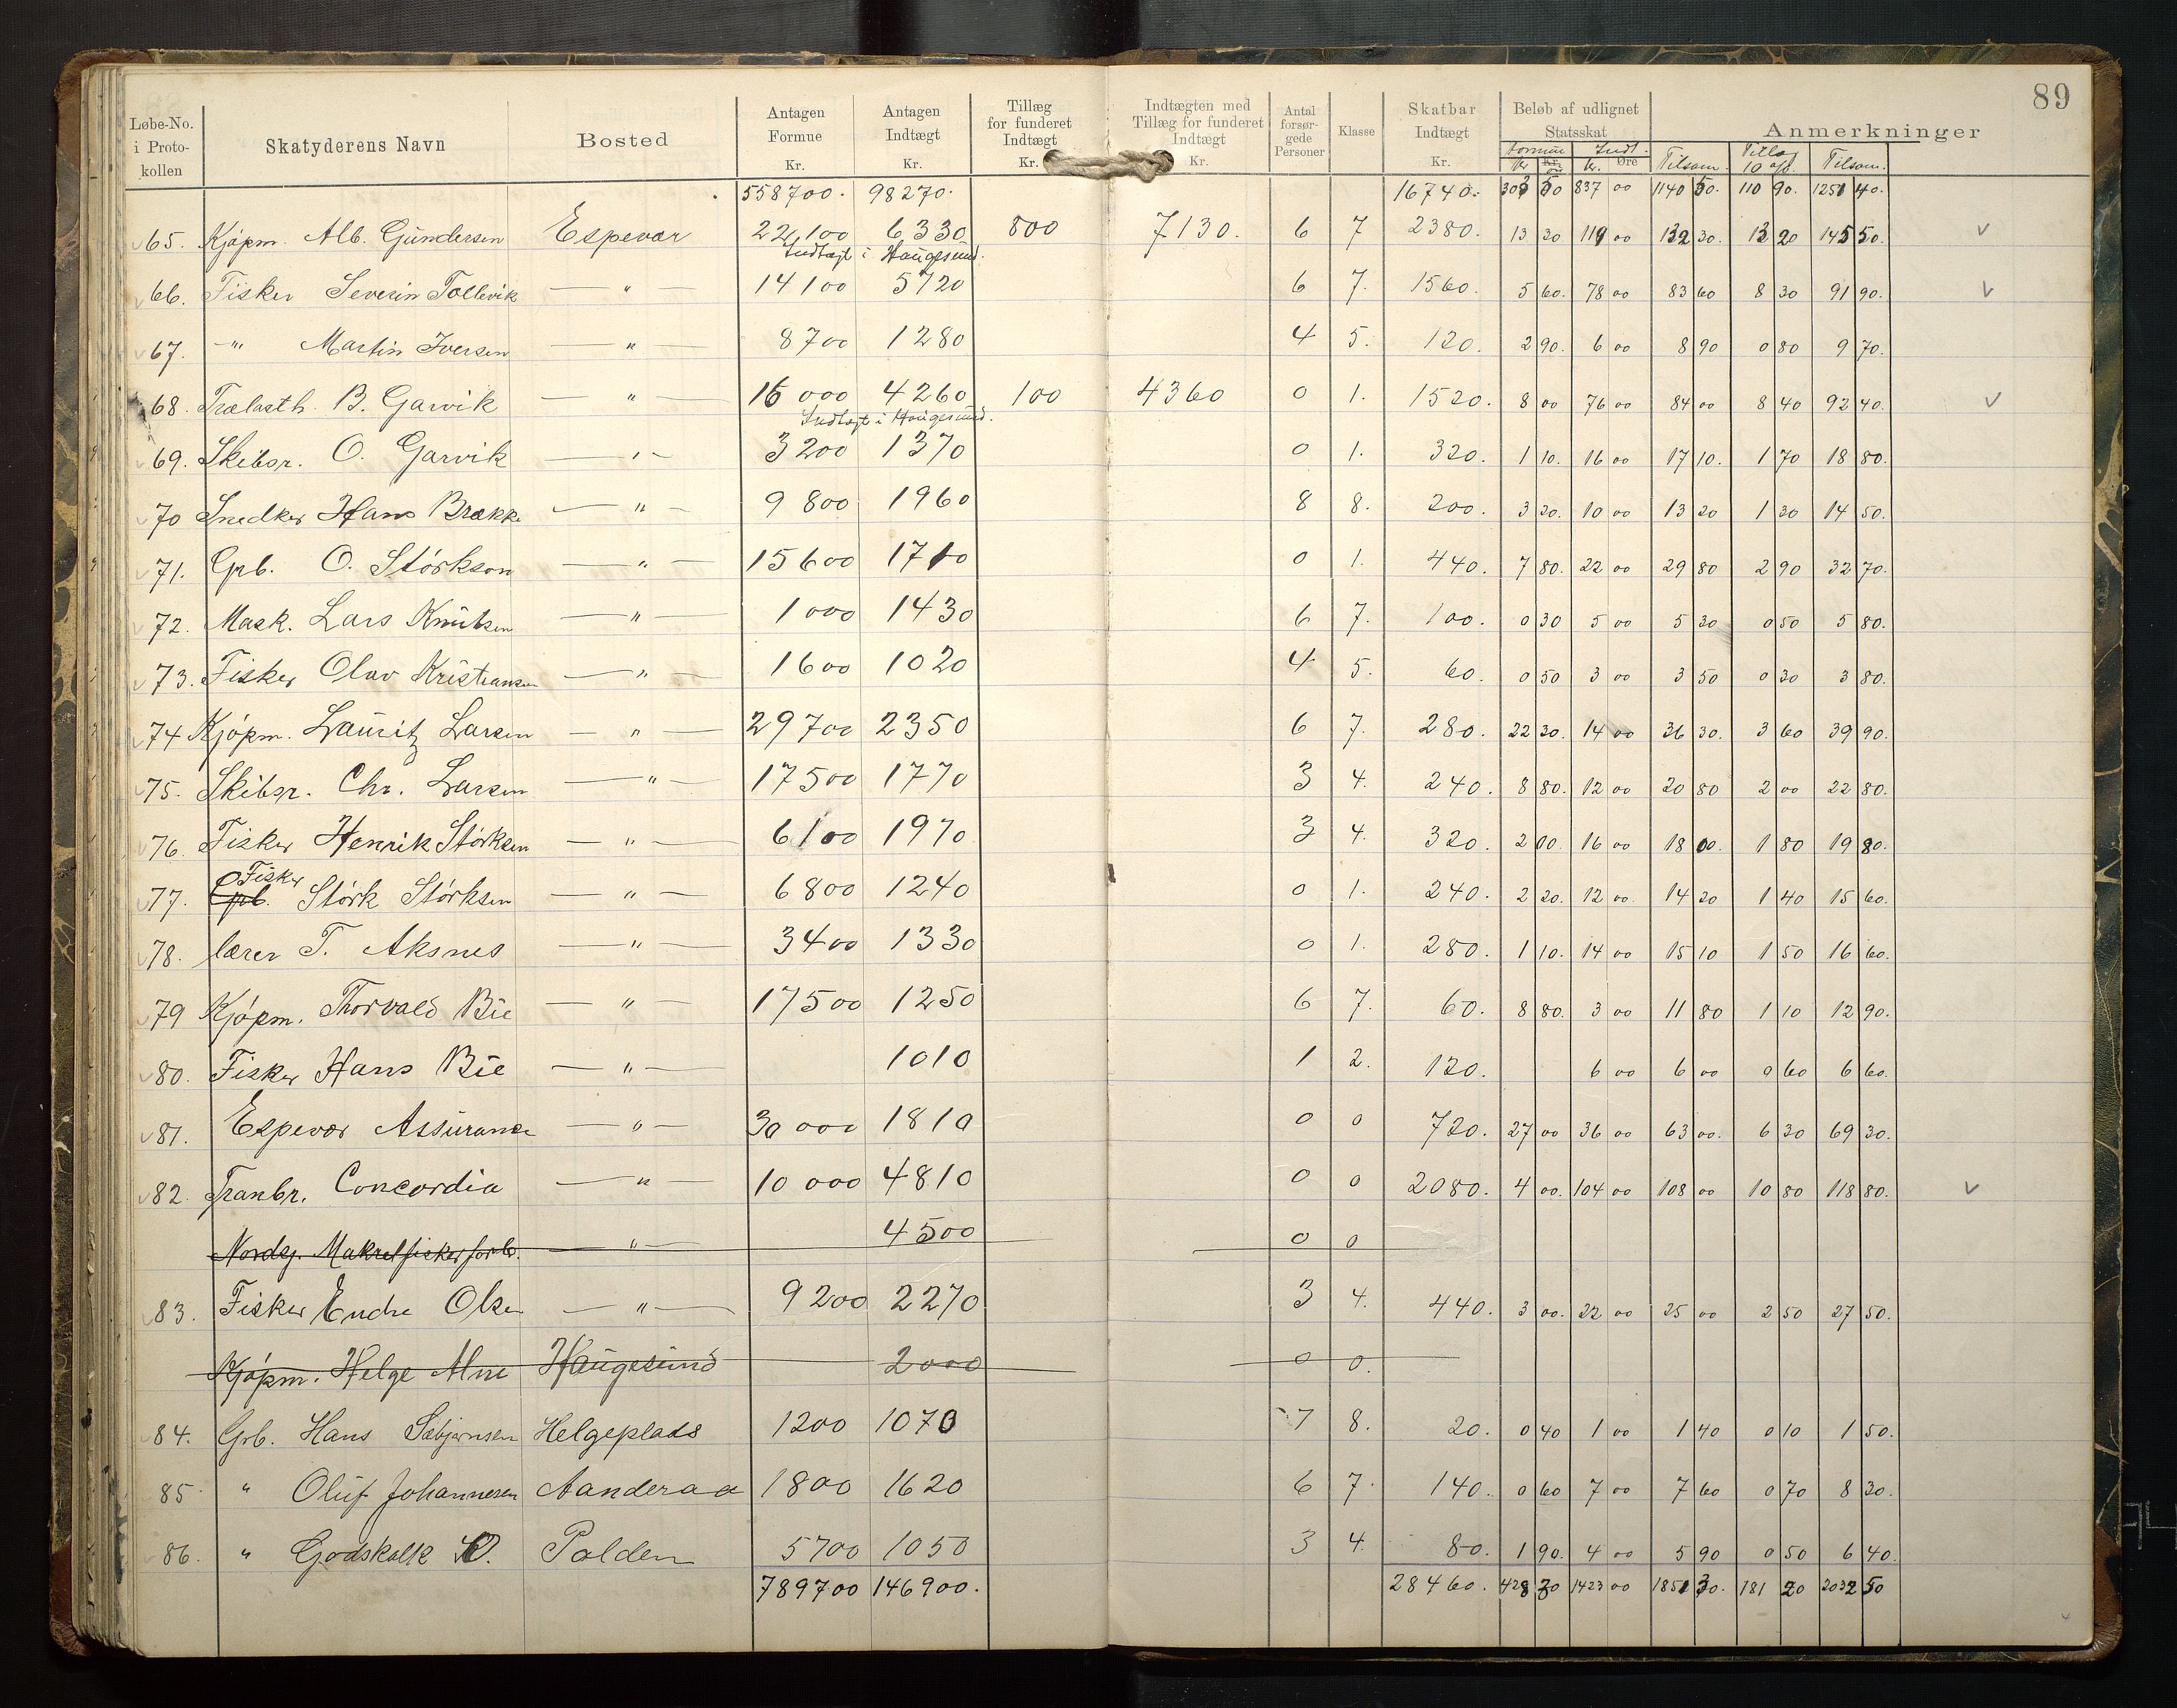 89
Løbe-No. i Proto-kollen | Skatyderens Navn | Bosted | Antagen Formue Kr. | Antagen Indtægt Kr. | Tillæg for funderet Indtægt Kr. | Indtægten med Tillæg for funderet Indtægt Kr. | Antal forsør-gede Personer | Klasse | Skatbar Indtægt Kr. | Beløb af udlignet Statsskat | Anmerkninger
formue Kr. | Indt. Kr. Øre | Tilsam. | Tillæg 10 | Tilsam.
558700. 98270. 16740. 303 50 837 00 1140 50. 110 90. 1251 40.
65. Kjøpm. Alb. Gundersen Espevær 22,100 6330 800 7130. 6 7 2380. 13 30 119 00 132 30. 13 20 145 50.
Indtægt i Haugesund.
66. Fisker Severin Tollevik — " — 14100 5720 6 7. 1560. 5 60. 78 00 83 60 8 30 91 90.
67. -"- Martin Iversen — " — 8700 1280 4 5. 120. 2 90. 6 00 8 90 0 80 9 70.
68. Trælasth. B. Garvik — " — 16000 4260 100 4360 0 1. 1520. 8 00 76 00 84 00 8 40 92 40.
Indtægt i Haugesund.
69. Skibsr. O. Garvik — " — 3200 1370 0 1. 320. 1 10. 16 00 17 10. 1 70 18 80.
70 Snedker Hans Brække — " — 9800 1960 8 8. 200. 3 20. 10 00 13 20 1 30 14 50.
71. Grb. O. Störkson — " — 15600 1710 0 1. 440. 7 80. 22 00 29 80 2 90 32 70.
72. Mask. Lars Knutsen — " — 1000 1430 6 7. 100. 0 30 5 00 5 30 0 50 5 80.
73. Fisker Olav Kristiansen — " — 1600 1020 4 5. 60. 0 50 3 00 3 50 0 30 3 80.
74 Kjøpm. Lauritz Larsen — " — 29700 2350 6 7. 280. 22 30. 14 00 36 30. 3 60 39 90.
75. Skibsr. Chr. Larsen — " — 17500 1770 3 4. 240. 8 80. 12 00 20 80 2 00 22 80.
76. Fisker Henrik Störksen — " — 6100 1970 3 4. 320. 2 00. 16 00 18 00. 1 80 19 80.
Fisker
77. Grb. Störk Störksen — " — 6800 1240 0 1. 240. 2 20. 12 00. 14 20 1 40 15 60.
78. lærer T. Aksnes — " — 3400 1330 0 1. 280. 1 10. 14 00 15 10 1 50 16 60.
79 Kjøpm. Thorvald Bie — " — 17500 1250 6 7. 60. 8 80. 3 00 11 80 1 10 12 90.
80. Fisker Hans Bie — " — 1010 1 2. 120. 6 00 6 00 0 60 6 60.
81. Espevær Assurance — " — 30000 1810 0 0 720. 27 00 36 00 63 00. 6 30 69 30.
82. Tranbr. Concordia — " — 10000 4810 0 0 2080. 4 00. 104 00 108 00 10 80 118 80.
Nordsj. Makrelfiskerforb. — " — 4500 0 0
83. Fisker Endre Olsen — " — 9200 2270 3 4. 440. 3 00. 22 00 25 00 2 50 27 50.
Kjøpm. Helge Alne Haugesund 2000 0 0.
84. Grb. Hans Sæbjørnsen Helgeplads 1200 1070 7 8. 20. 0 40 1 00 1 40 0 10 1 50.
85 " Oluf Johannesen Aanderaa 1800 1620 6 7. 140. 0 60 7 00 7 60 0 70 8 30.
86. " Godskalk O. Polden 5700 1050 3 4. 80. 1 90. 4 00 5 90 0 50 6 40.
789700 146900. 28460. 428 30 1423 00 1851 30. 181 20 2032 50